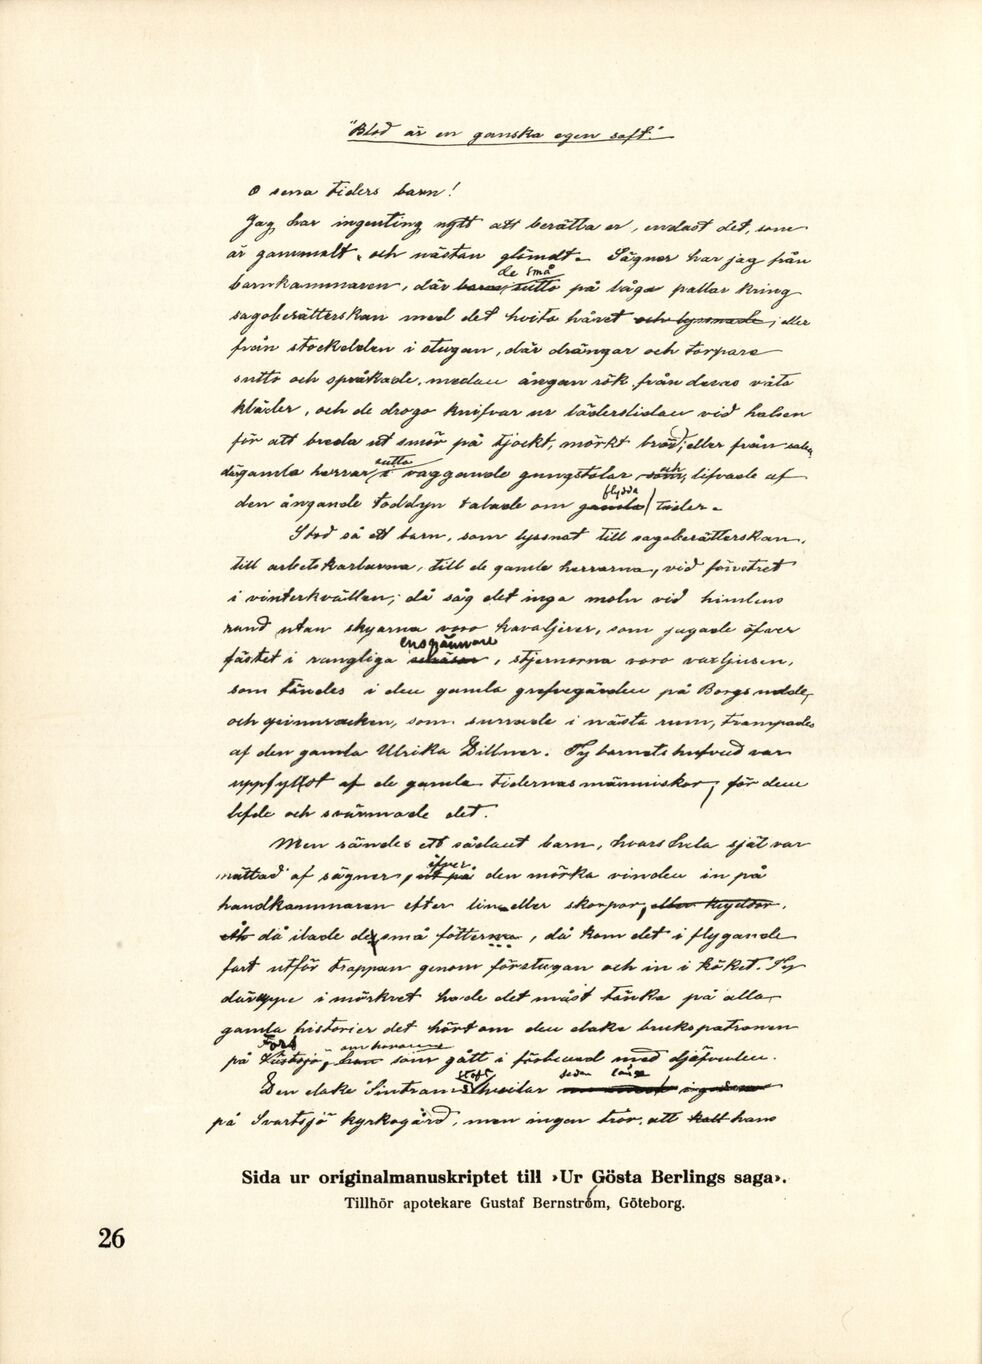 "Blod är en ganska egen saft."
O sena tiders barn!
Jag har ingenting nytt att berätta er, endast det, som
är gammalt och nästan glömdt. Sägner har jag från
de små
barnkammaren, där sutto på låga pallar kring
sagoberätterskan med det hvita håret och lyssnade; eller
från stockelden i stugan, där drängar och torpare
sutto och språkade, medan ångan rök från deras våta
kläder, och de drogo knifvar ur läderslidan vid halsen
för att breda ut smör på tjockt, mörkt bröd; eller från salen
sutto
där gamla herrar i vaggande gungstolar och, lifvade af
flydda
den ångande toddyn talade om gamla tider.
Stod så ett barn, som lyssnat till sagoberätterskan,
till arbetskarlarna, till de gamla herrarna, vid fönstret
i vinterkvällen, då såg det inga moln vid himlens
rand utan skyarna voro kavaljerer, som jagade öfver
enspännare
fästet i rangliga , stjernorna voro vaxljusen,
som tändes i den gamla grefvegården på Borgs udde,
och spinnrocken, som surrade i nästa rum, trampades
af den gamla Ulrika Dillner. Ty barnets hufvud var
uppfyllt af de gamla tidernas människor, för dem
lefde och svärmade det.
Men sändes ett sådant barn, hvars hela själ var
öfver
mättad af sägner, ut på den mörka vinden in på
handkammaren efter lin eller skorpor, eller kryddor,
då ilade de små fötterna, då kom det i flygande
fart utför trappan genom förstugan och in i köket. Ty
däruppe i mörkret hade det måst tänka på alla
gamla historier det hört om den elake brukspatronen
Fors om honom
på , som gått i förbund med djäfvulen.
stoft sedan länge
Den elake Sintrams hvilar
på Svartsjö kyrkogård, men ingen tror, att hans
Sida ur originalmanuskriptet till ›Ur Gösta Berlings saga›.
Tillhör apotekare Gustaf Bernström, Göteborg.
26